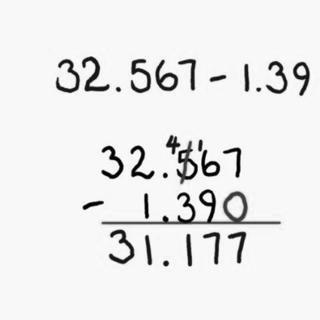 32.567 - 1.39
4 1
32.567
- 1.390
31.177